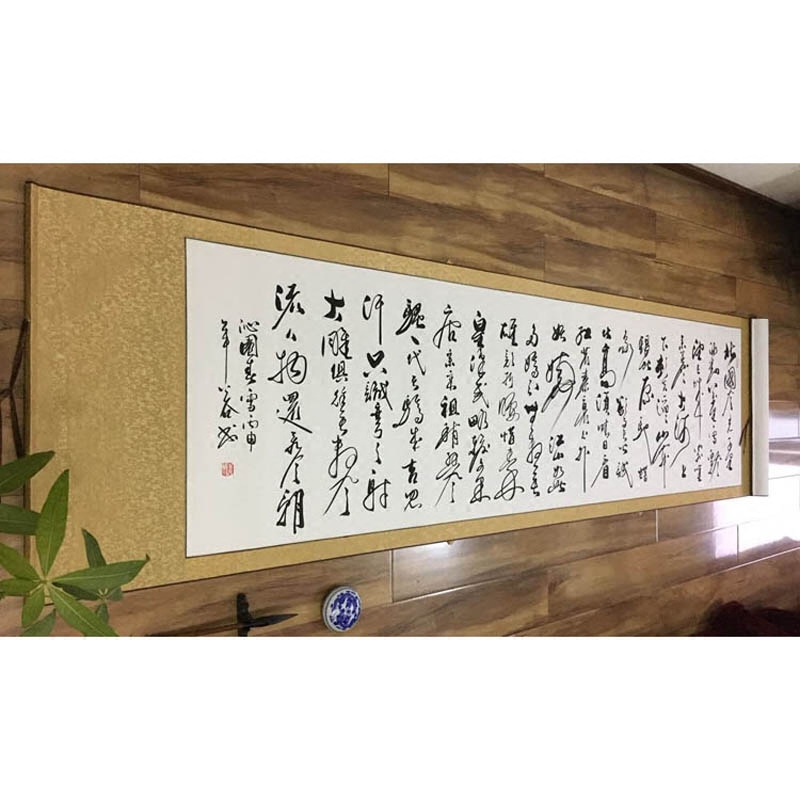 北國風光千里
冰封萬里雪飄
望長城内外惟餘
莽莽大河上
下頓失滔滔山舞
銀蛇原馳蠟
象欲與天公試
比高須晴日看
紅裝素裹分外
妖嬈江山如此
多嬌引無數英
雄競折腰惜秦
皇漢武略輸文采
唐宗宋祖稍遜風
騷一代天驕成吉思
汗只識彎弓射
大雕俱往矣數風
流人物還看今朝
沁園春雪丙申
年書